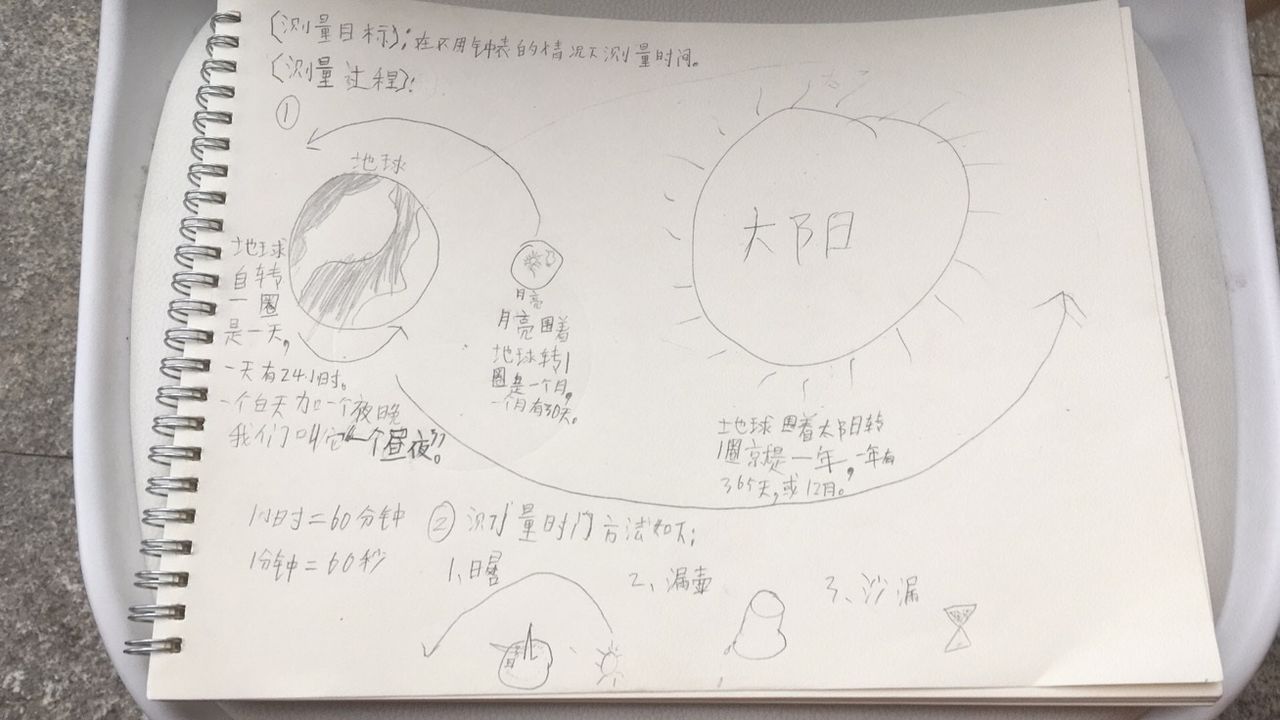 〔测量目标〕:在不用钟表的情况下测量时间。
〔测量过程〕:
①
地球
地球
自转
一圈
是一天,
一天有24小时。
一个白天加一个夜晚
我们叫它“一个昼夜”。
月亮
月亮围着
地球转1
圈是一个月,
一个月有30天。
太阳
地球围着太阳转
1圈就是一年,一年有
365天,或12月。
1小时=60分钟
1分钟=60秒
②测量时间方法如下:
1、日晷
2、漏壶
3、沙漏